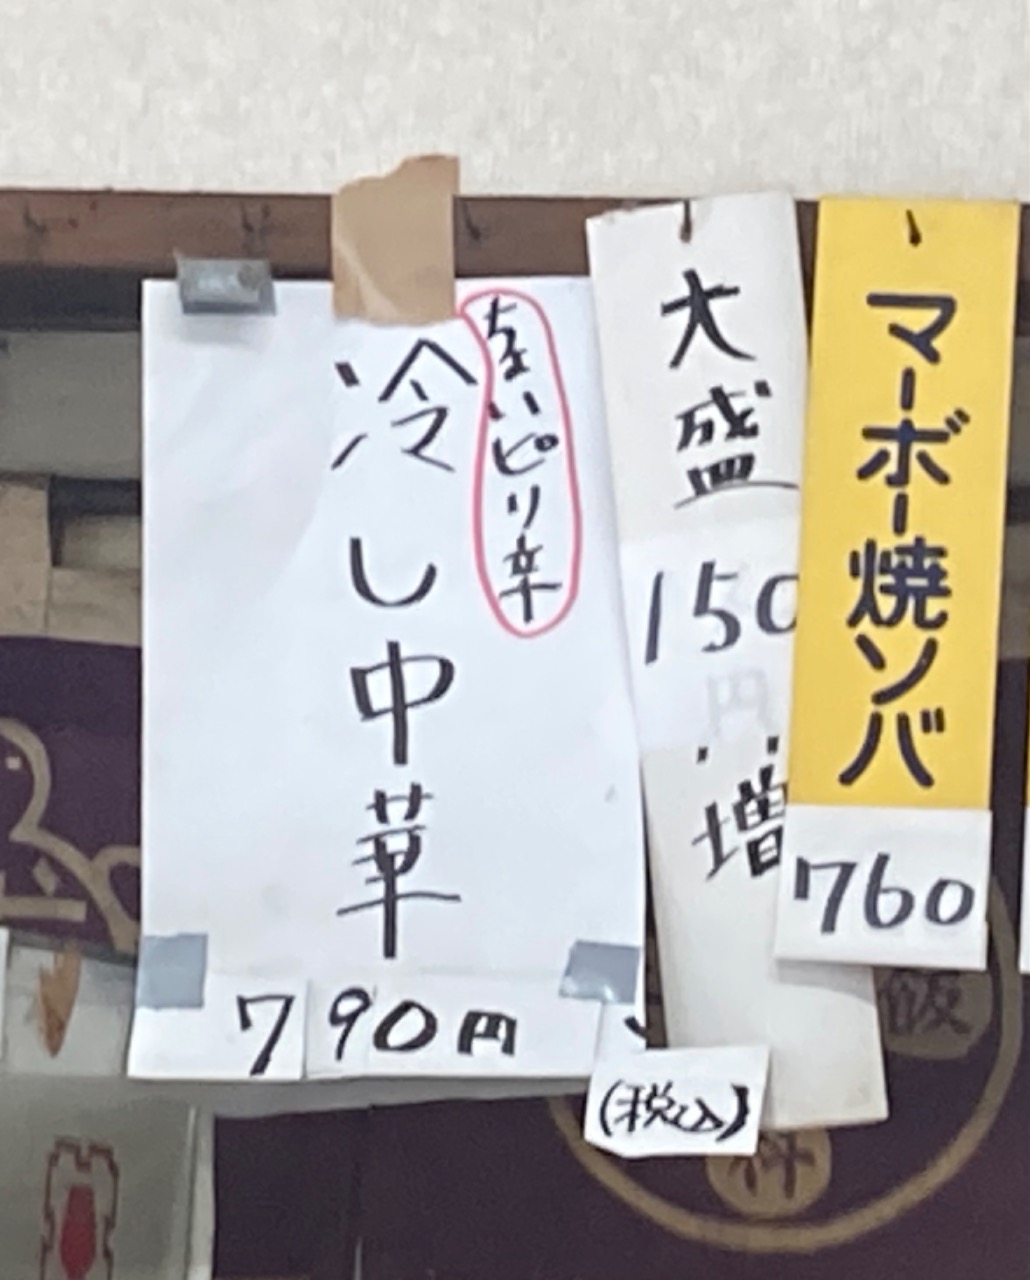 マーボー焼ソバ
760
大盛
150
円
増
ちょいピリ辛
冷し中華
790円
(税込)
飯